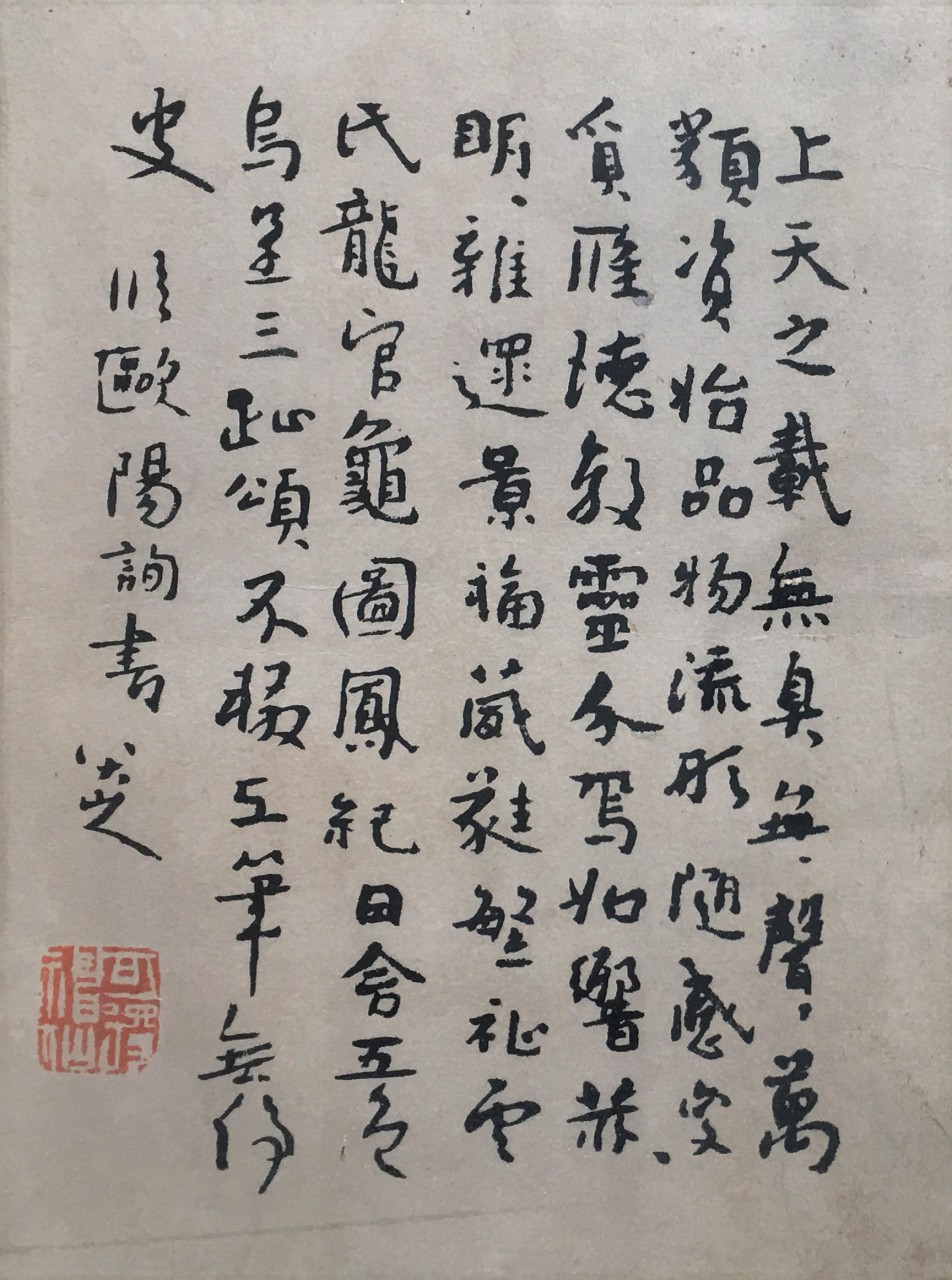 上天之載無臭無聲萬
類資始品物流形隨感变
質應德效靈介焉如響赫、
明、雜遝景福葳蕤繁祉雲
氏龍官龜圖鳳紀日含五色
烏呈三趾頌不輟工筆無停
史 临歐陽詢書 八大山人
可得神仙